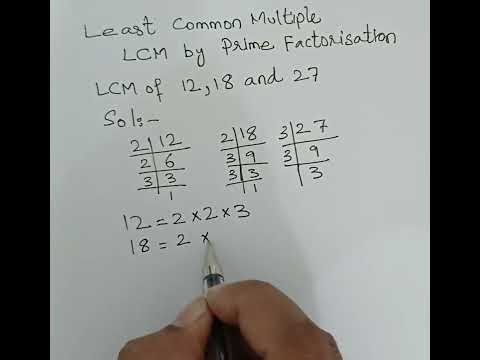 Least Common Multiple
LCM by Prime Factorisation
LCM of 12, 18 and 27
Sol:-
2 12 2 18 3 27
2 6 3 9 3 9
3 3 3 3 3
1 1
12 = 2 × 2 × 3
18 = 2 ×